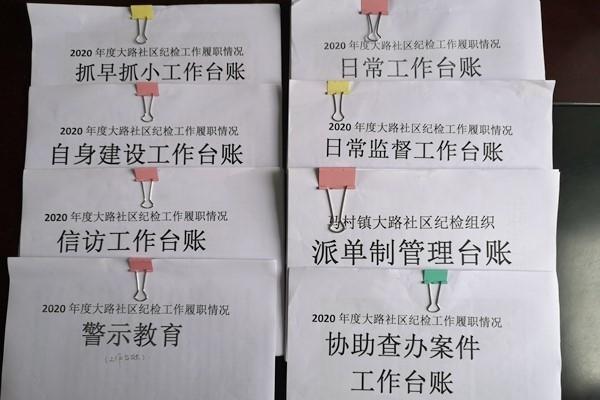 2020 年度大路社区纪检工作履职情况
抓早抓小工作台账
2020 年度大路社区纪检工作履职情况
自身建设工作台账
2020 年度大路社区纪检工作履职情况
信访工作台账
2020 年度大路社区纪检工作履职情况
警示教育
(工作台账)
2020 年度大路社区纪检工作履职情况
日常工作台账
2020 年度大路社区纪检工作履职情况
日常监督工作台账
马村镇大路社区纪检组织
派单制管理台账
2020 年度大路社区纪检工作履职情况
协助查办案件
工作台账